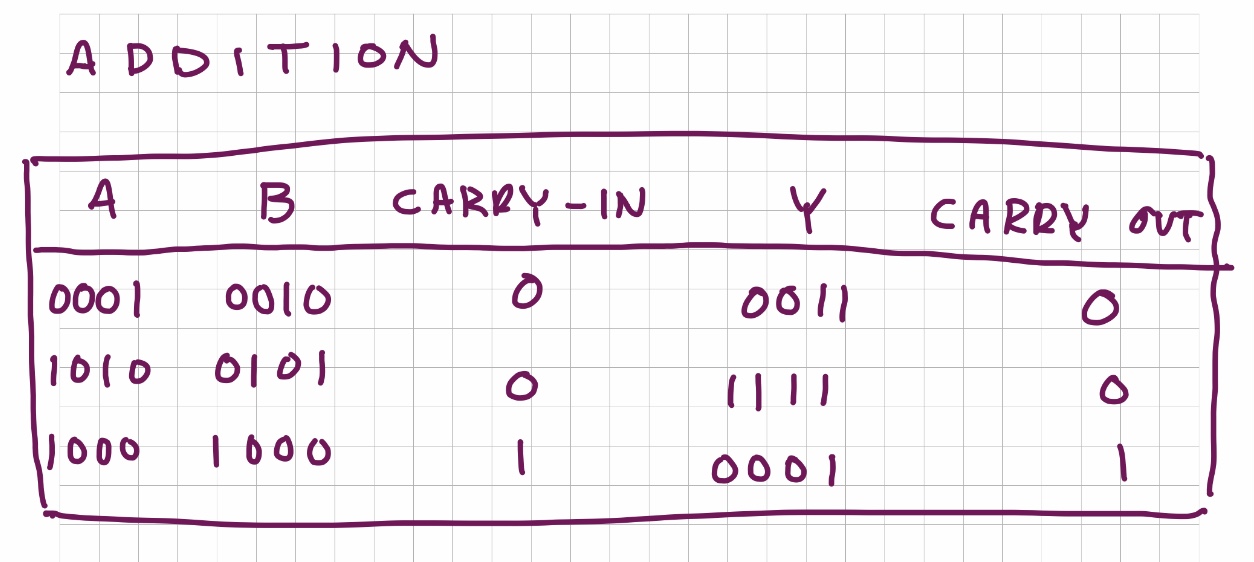 ADDITION
A B CARRY-IN Y CARRY OUT
0001 0010 0 0011 0
1010 0101 0 1111 0
1000 1000 1 0001 1